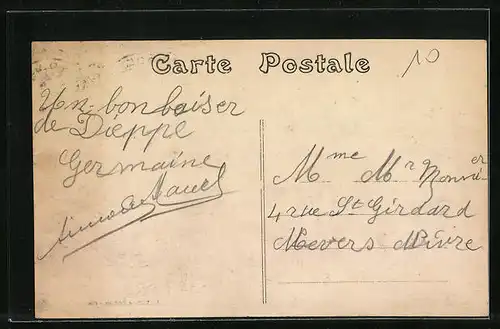 Carte Postale
10
Un bon baiser
de Dieppe
Germaine
Mme Mr Monnier
4 rue St Girdard
Nevers Nièvre